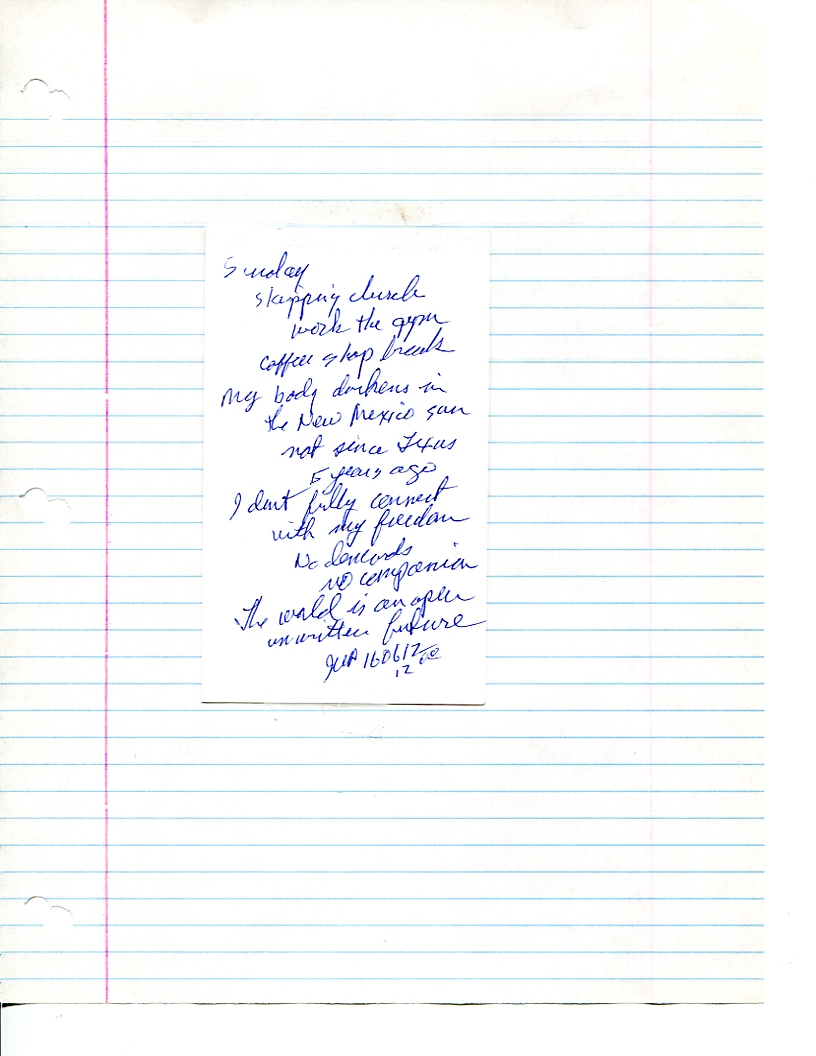 Sunday
skipping church
work the gym
coffee shop break
My body darkens in
the New Mexico sun
not since Texas
5 years ago
I dont fully connect
with my freedom
No demands
no companion
The world is an open
unwritten future
160612
12 00